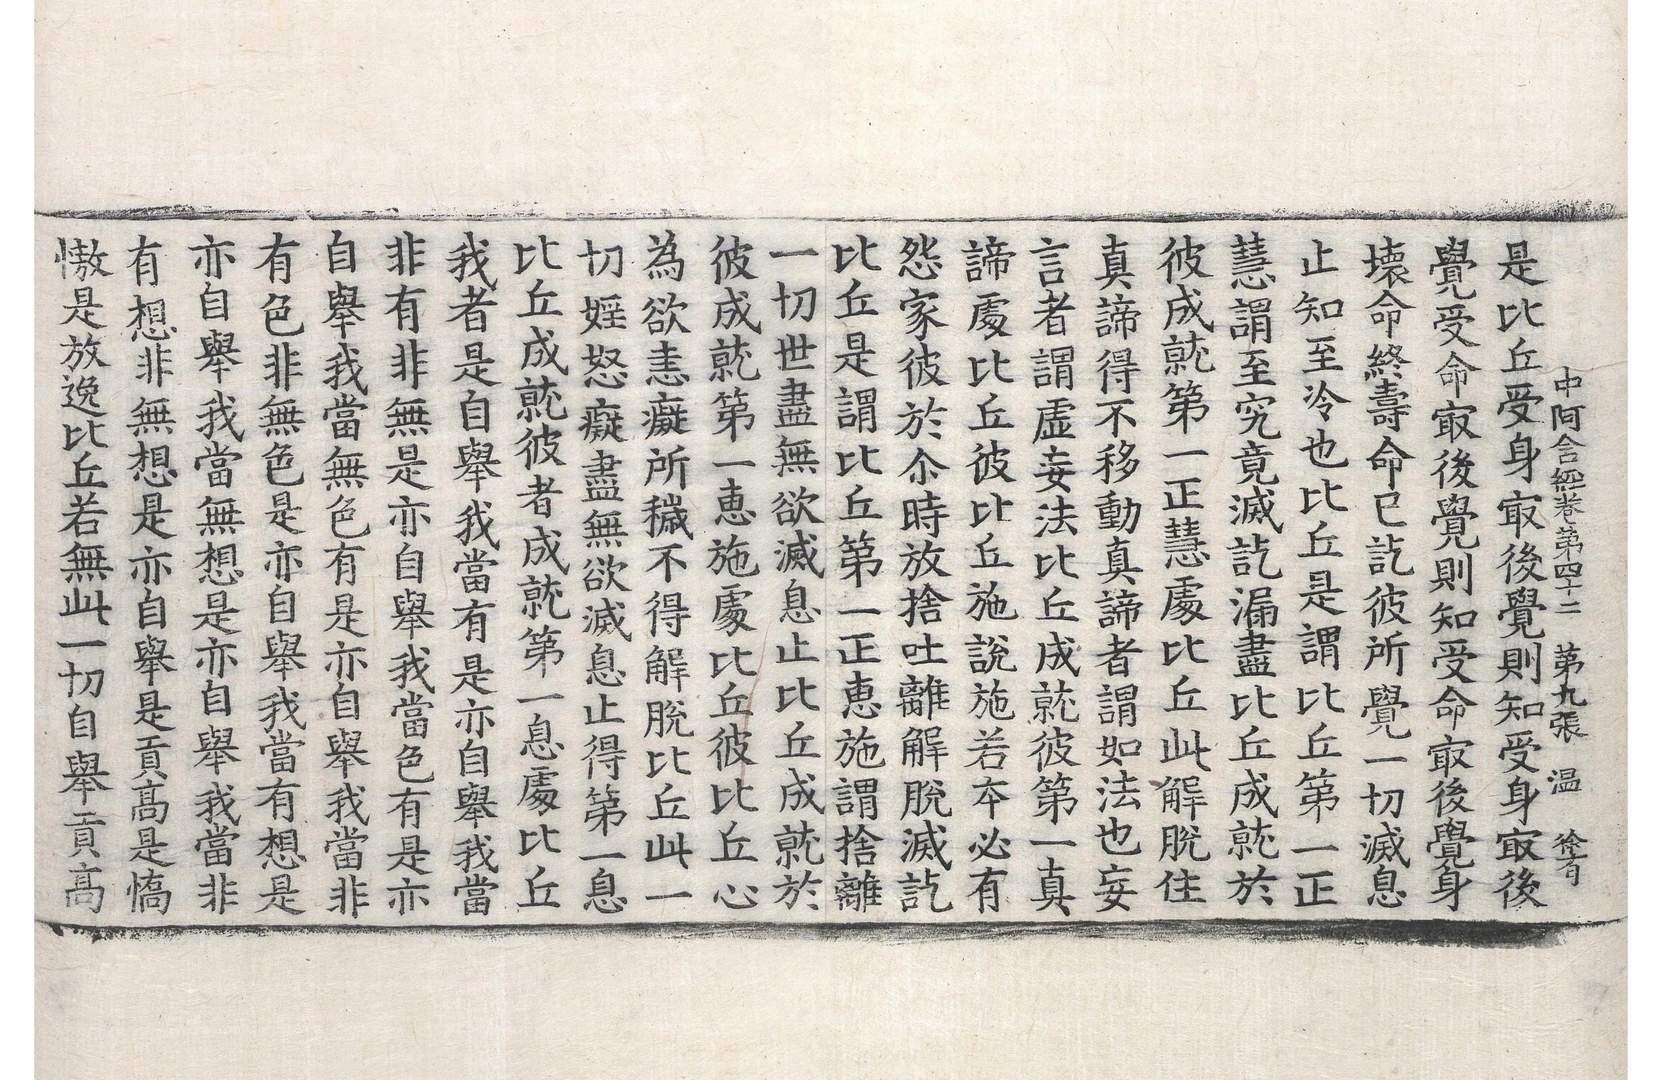 中阿含經卷第四十二 第九張 温
是比丘受身冣後覺則知受身冣後
覺受命冣後覺則知受命冣後覺身
壞命終壽命已訖彼所覺一切滅息
止知至冷也比丘是謂比丘第一正
慧謂至究竟滅訖漏盡比丘成就於
彼成就第一正慧處比丘此解脫住
真諦得不移動真諦者謂如法也妄
言者謂虛妄法比丘成就彼第一真
諦處比丘彼比丘施說施若本必有
怨家彼於尒時放捨吐離解脫滅訖
比丘是謂比丘第一正惠施謂捨離
一切世盡無欲滅息止比丘成就於
彼成就第一惠施處比丘彼比丘心
為欲恚癡所穢不得解脫比丘此一
切婬怒癡盡無欲滅息止得第一息
比丘成就彼者成就第一息處比丘
我者是自舉我當有是亦自舉我當
非有非無是亦自舉我當色有是亦
自舉我當無色有是亦自舉我當非
有色非無色是亦自舉我當有想是
亦自舉我當無想是亦自舉我當非
有想非無想是亦自舉是貢髙是憍
慠是放逸比丘若無此一切自舉貢髙